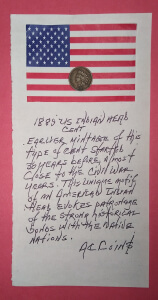 1889 US INDIAN HEAD
CENT
EARLIER MINTAGE OF THIS
TYPE OF CENT STARTED
30 YEARS BEFORE, ALMOST
CLOSE TO THE CIVIL WAR
YEARS. THIS UNIQUE MOTIF
OF AN AMERICAN INDIAN
HEAD EVOKES PATRIOTISM
OF THE STRONG HISTORICAL
BONDS WITH THE NATIVE
NATIONS.
AC COINS